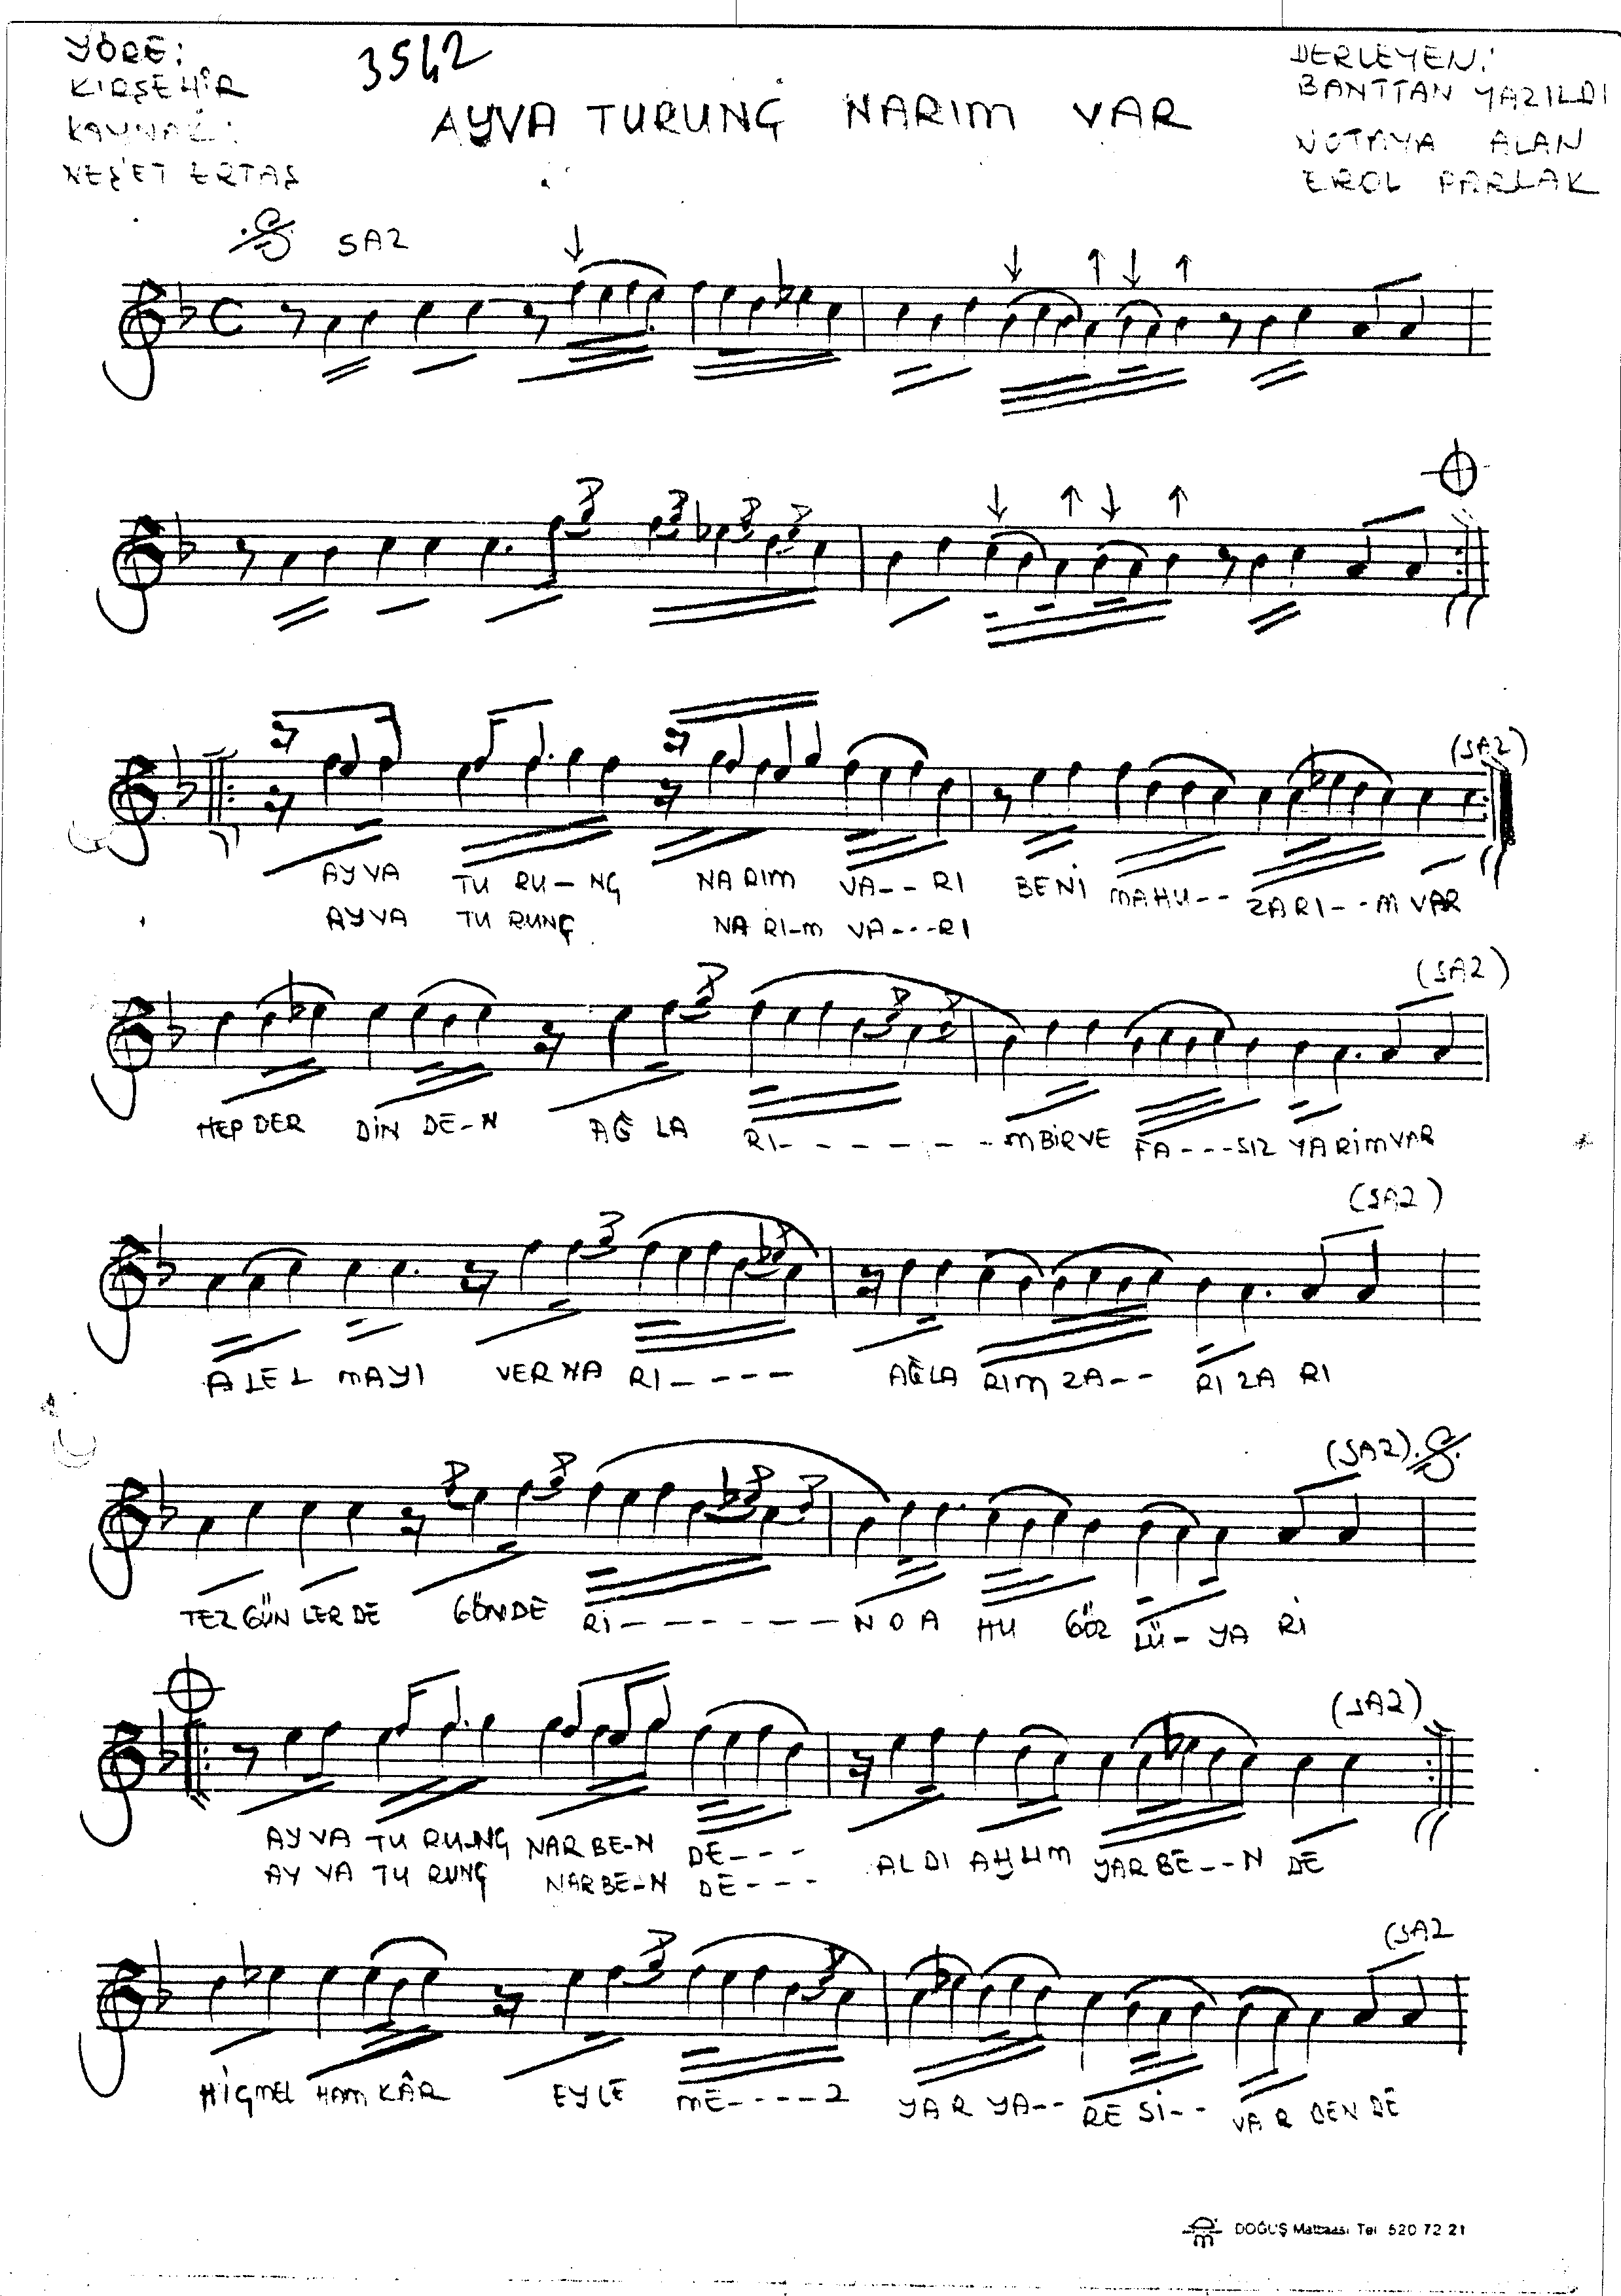 YÖRE:
KIRŞEHİR
KAYNAĞI:
NEŞ'ET ERTAŞ
3542
AYVA TURUNÇ NARIM VAR
DERLEYEN:
BANTTAN YAZILDI
NOTAYA ALAN
EROL PARLAK
SAZ
(SAZ)
AYVA TU RU-NÇ NA RIM VA--RI BENİ MAHU-- ZA RI--M VAR
AYVA TU RUNÇ NA RI-M VA---RI
(SAZ)
HEP DER DİN DE-N AĞ LA RI- - - - - - -M BİR VE FA---SIZ YARİM VAR
(SAZ)
AL EL MAYI VER NA RI- - - - AĞLA RIM ZA-- RI ZA RI
(SAZ)
TEZ GÜN LER DE GÖNDE Rİ- - - - - - -N O A HU GÖZ LÜ- YA Rİ
(SAZ)
AYVA TU RU-NÇ NAR BE-N DE--- ALDI AHIM YAR BE--N DE
AY VA TU RUNÇ NAR BE-N DE---
(SAZ
HİÇ MEL HAM KÂR EYLE ME----Z YAR YA-- RE Sİ-- VA R BEN DE
DOĞUŞ Matbaası Tel 520 72 21